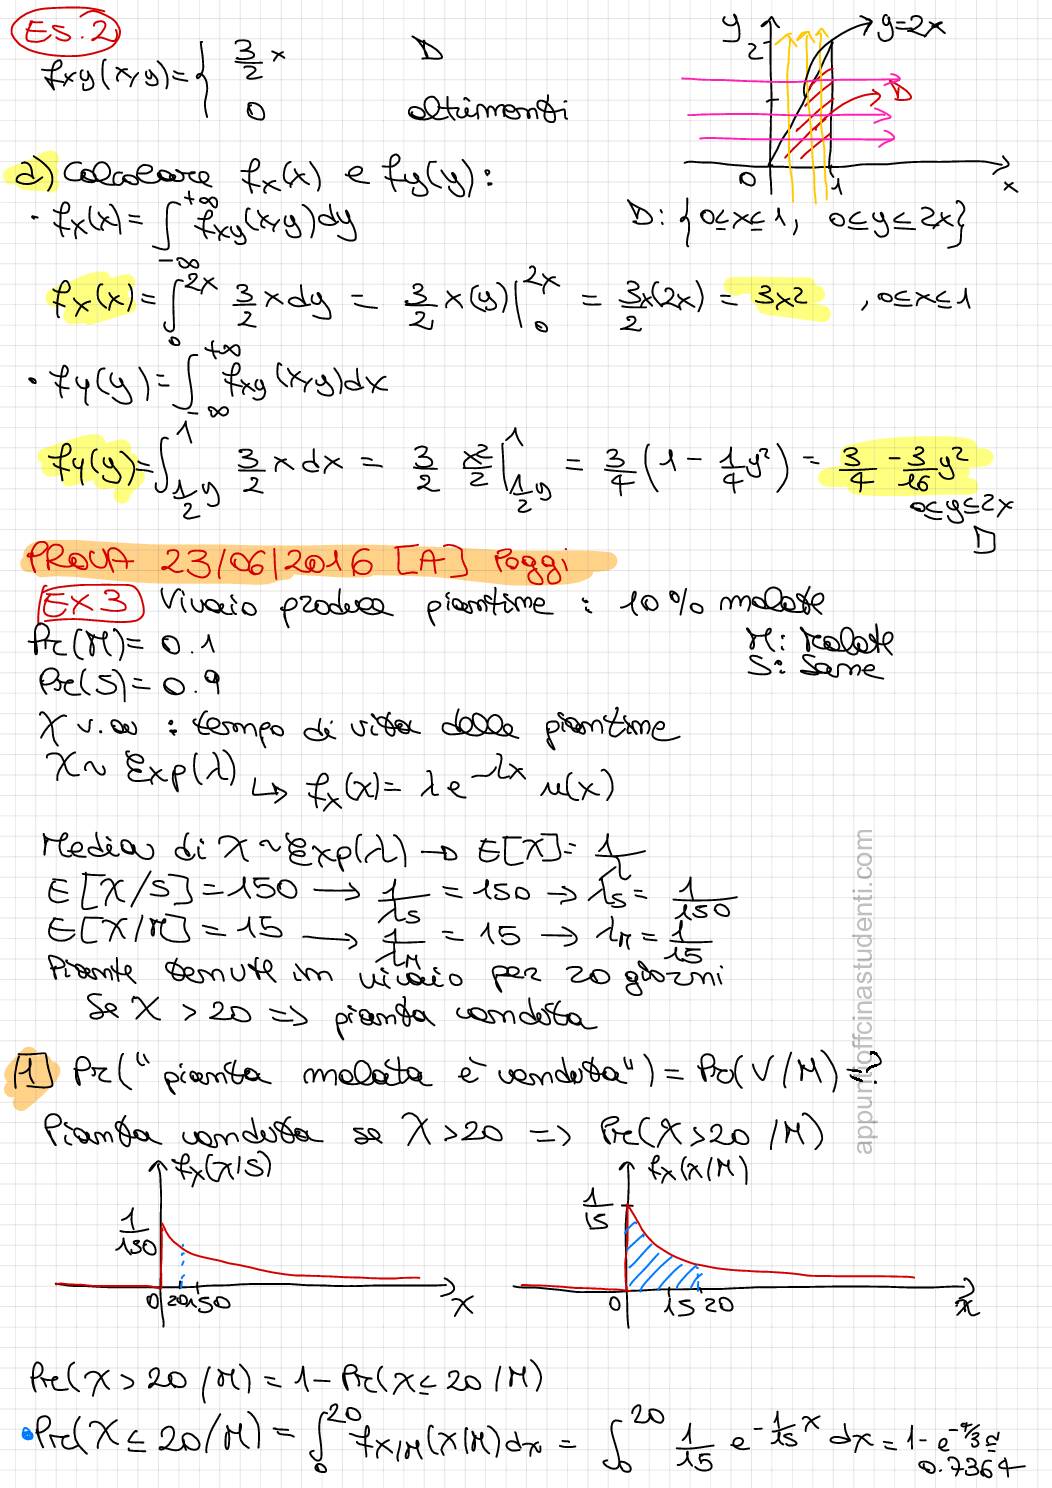 ES.2
fxy(x,y)= { 3/2 x D
0 altrimenti
y
2
y=2x
D
0 1 x
D: {0≤x≤1, 0≤y≤2x}
a) Calcolare fx(x) e fy(y):
• fx(x)= ∫_{-∞}^{+∞} fxy(x,y)dy
fx(x)= ∫_0^{2x} 3/2 x dy = 3/2 x(y)|_0^{2x} = 3/2 x(2x) = 3x² , 0≤x≤1
• fy(y)= ∫_{-∞}^{+∞} fxy(x,y)dx
fy(y)= ∫_{1/2 y}^1 3/2 x dx = 3/2 x²/2 |_{1/2 y}^1 = 3/4 (1 - 1/4 y²) = 3/4 - 3/16 y²
0≤y≤2x
D
PROVA 23/06/2016 [A] Poggi
EX 3 Vivaio produce piantine : 10% malate
Pr(M)= 0.1 M: Malate
Pr(S)= 0.9 S: Sane
X v.a : tempo di vita delle piantine
X ~ Exp(λ) ↳ fx(x)= λ e^{-λx} u(x)
Media di X ~ Exp(λ) → E[X]= 1/λ
E[X/S]=150 → 1/λS = 150 → λS = 1/150
E[X/M]=15 → 1/λM = 15 → λM = 1/15
Piante tenute in vivaio per 20 giorni
Se X >20 => pianta venduta
1) Pr("pianta malata è venduta") = Pr(V/M)=?
Pianta venduta se X>20 => Pr(X>20 /M)
fx(x/S)
1/150
0 20 150 x
fx(x/M)
1/15
0 15 20 x
Pr(X > 20 /M) = 1 - Pr(X≤ 20 /M)
• Pr(X ≤ 20/M) = ∫_0^{20} fX/M(x/M)dx = ∫_0^{20} 1/15 e^{-1/15 x} dx = 1- e^{-4/3} ≅
0.7364
appuntioffcinastudenti.com